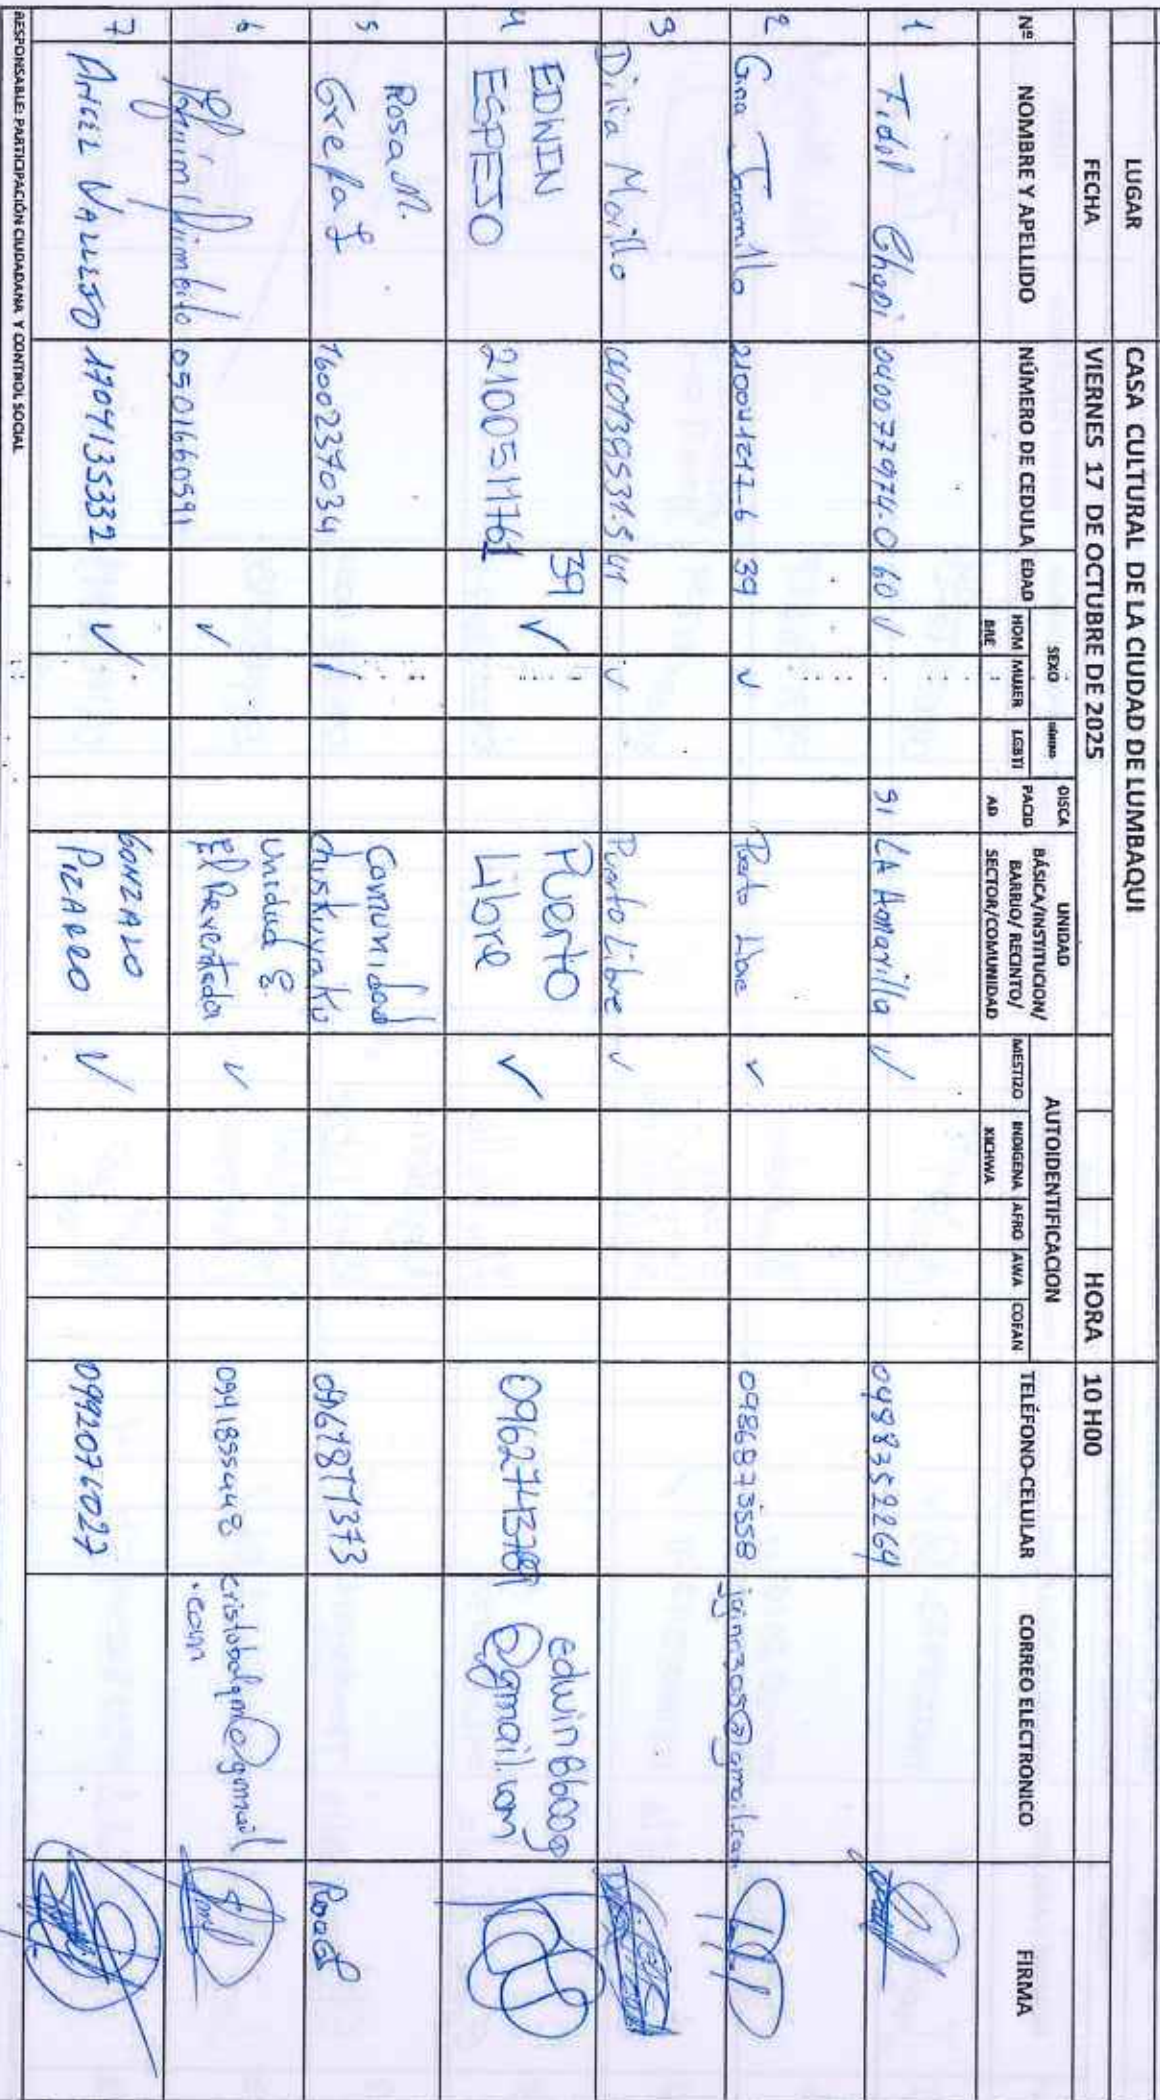 LUGAR CASA CULTURAL DE LA CIUDAD DE LUMBAQUI
FECHA VIERNES 17 DE OCTUBRE DE 2025 HORA 10 H00
Nº NOMBRE Y APELLIDO NÚMERO DE CEDULA EDAD SEXO HOM BRE MUJER LGBTI DISCA PACID AD UNIDAD BÁSICA/INSTITUCION/ BARRIO/ RECINTO/ SECTOR/COMUNIDAD AUTOIDENTIFICACION MESTIZO INDIGENA KICHWA AFRO AWA COFAN TELÉFONO-CELULAR CORREO ELECTRÓNICO FIRMA
1 Fidel Chapi 040077974-0 60 ✓ 91 LA Amarilla ✓ 0488352264
2 Gina Jaramillo 39 ✓ Puerto Libre ✓ 0986873558
3 Dilia Morillo 41 ✓ Puerto Libre ✓
4 EDWIN ESPEJO 39 ✓ Puerto Libre ✓ edwin6600g @gmail.com
5 Rosa M. Grefa J 1600237034 / Comunidad
6 0501660591 ✓ Unidad E. El Reventador ✓ 0941855448 cristobalqm@gmail .com
7 ANGEL VALLEJO 1704135332 ✓ GONZALO PIZARRO ✓ 0992076027
RESPONSABLE: PARTICIPACIÓN CIUDADANA Y CONTROL SOCIAL